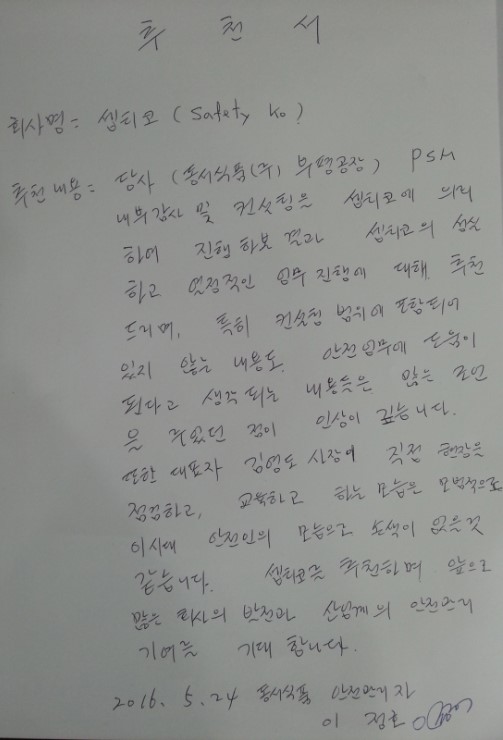 추 천 서
회사명 = 셉티코 (Safety Ko)
추천내용 = 당사 (동서식품(주) 부평공장) PSM
내부감사 및 컨설팅을 셉티코에 의뢰
하여 진행 하본 결과 셉티코의 성실
하고 열정적인 업무 진행에 대해 추천
드리며, 특히 컨설팅 범위에 포함되어
있지 않는 내용도 안전업무에 도움이
된다고 생각 되는 내용들은 많은 조언
을 주었던 점이 인상이 깊습니다.
또한 대표자 김영도 사장에 직접 현장을
점검하고, 교육하고 하는 모습은 모범적으로
이시대 안전인의 모습으로 손색이 없을것
같습니다. 셉티코를 추천하며 앞으로
많은 회사의 발전과 산업계의 안전관리
기여를 기대 합니다.
2016. 5. 24 동서식품 안전관리자
이 정호